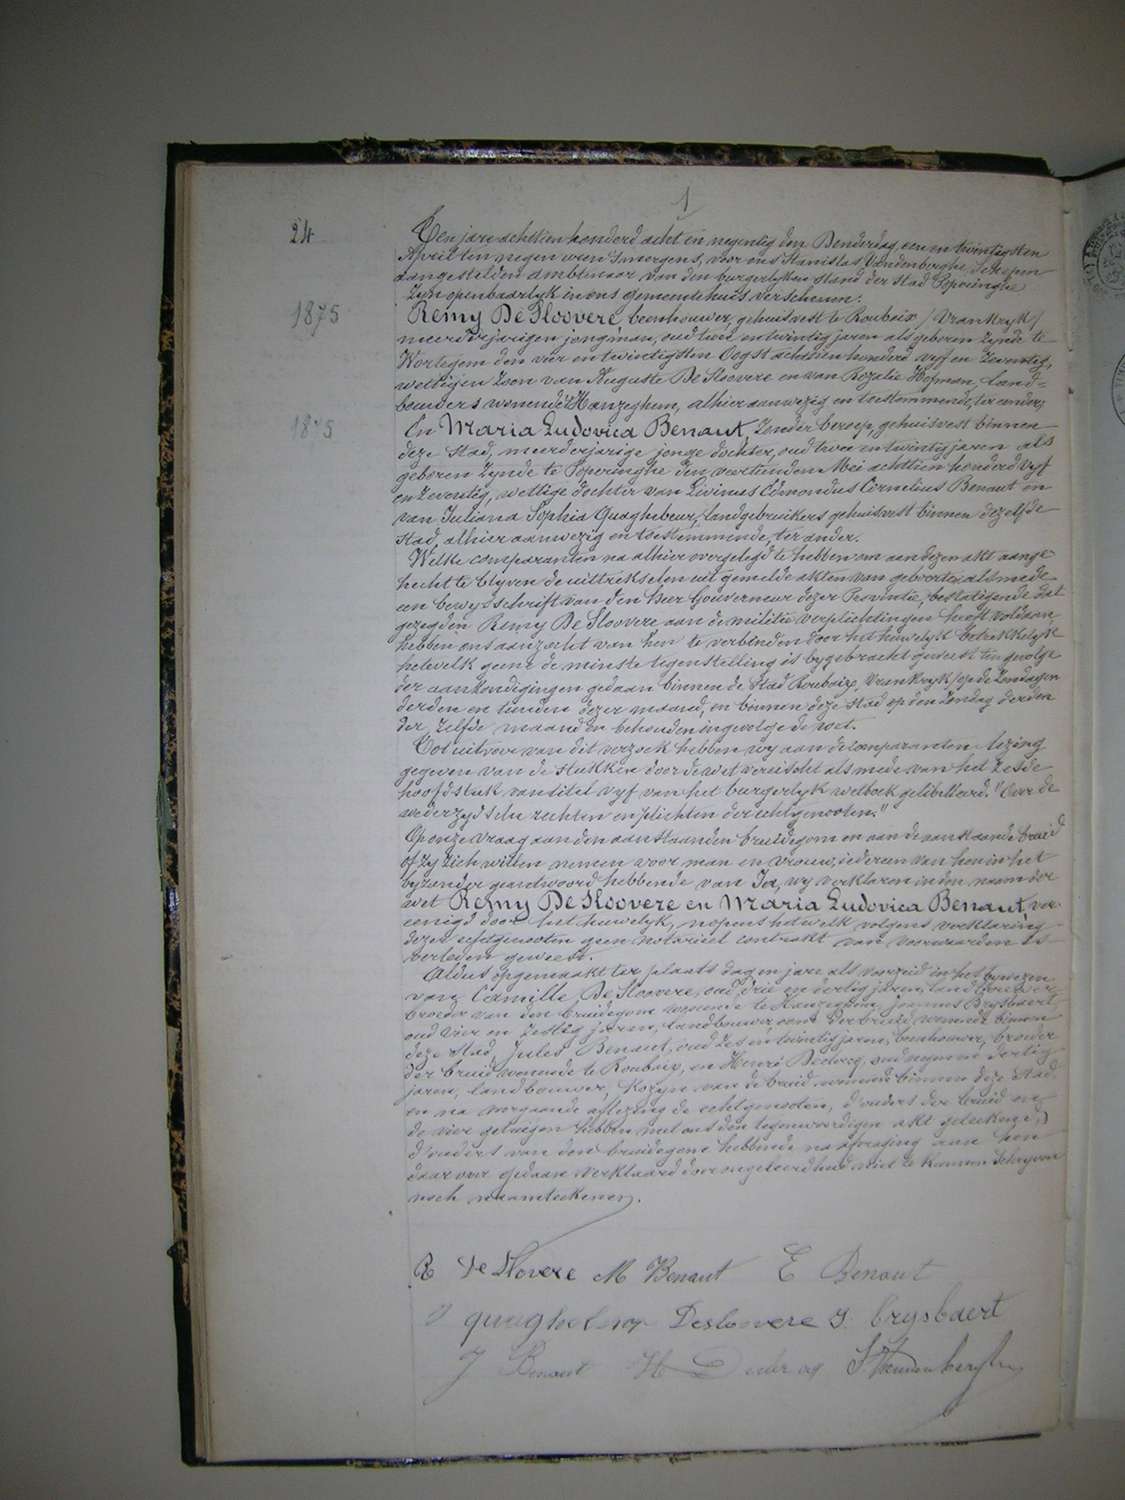 1
24
Ten jare achttien honderd acht en negentig den Donderdag, een en twintigsten
April ten negen uren 's morgens, voor ons Stanislas Vandenberghe, Schepen
aangestelden ambtenaar van den burgerlyken stand der stad Poperinghe
Zyn openbaarlyk in ons gemeentehuis verschenen:
1875
Remy De Sloovere, beenhouwer, gehuisvest te Roubaix /Vrankryk/
meerderjarigen jongman, oud twee en twintig jaren als geboren zynde te
Wortegem den vier en twintigsten Oogst achttien honderd vyf en zeventig,
wettigen zoon van Auguste De Sloovere en van Rozalie Hofman, land=
bouwers wonende te Hanzeghem, alhier aanwezig en toestemmende, ter eender,
1875
En Maria Ludovica Benaut, zonder beroep, gehuisvest binnen
deze stad, meerderjarige jonge dochter, oud twee en twintig jaren als
geboren zynde te Poperinghe den veertienden Mei achttien honderd vyf
en zeventig, wettige dochter van Livinus Edmondus Cornelius Benaut en
van Juliana Sophia Quaghebeur, landgebruikers gehuisvest binnen dezelfde
stad, alhier aanwezig en toestemmende, ter ander.
Welke comparanten na alhier overgelegd te hebben om aan dezen akt aange
hecht te blyven de uittrekselen uit gemelde akten van geboorten, alsmede
een bewysschrift van den heer Gouverneur dezer Provintie, bestatigende dat
gezegden Remy De Sloovere aan de militie verplichtingen heeft voldaan,
hebben ons aanzocht van hen te verbinden door het huwelyk betrekkelyk
hetwelk geene de minste tegenstelling is bygebracht geweest ten gevolge
der aankondigingen gedaan binnen de stad Roubaix, Vrankryk/ op de Zondagen
derden en tienden dezer maand, en binnen deze stad op den Zondag derden
der zelfde maand en behouden ingevolge de wet.
Tot uitvoer van dit verzoek hebben wy aan de comparanten lezing
gegeven van de stukken door de wet vereischt alsmede van het zesde
hoofdstuk van titel vyf van het burgerlyk wetboek getitelleerd. "Over de
wederzydsche rechten en plichten der echtgenooten."
Op onze vraag aan den aanstaanden bruidegom en aan de aanstaande bruid
of zy zich willen nemen voor man en vrouw, iedereen van hen in het
byzonder geantwoord hebbende van Ja, wy verklaren in den naam der
wet Remy De Sloovere en Maria Ludovica Benaut, ver=
eenigd door het huwelyk, nopens hetwelk volgens verklaring
dezer echtgenooten geen notarieel contrakt van voorwaarden is
verleden geweest.
Aldus opgemaakt ter plaats dag en jare als voorzeid in het bywezen
van Camille De Sloovere, oud drie en dertig jaren, landbouwer
broeder van den bruidegom wonende te Hanzeghem, Joannes Brysbaert
oud vier en zestig jaren, landbouwer oom der bruid wonende binnen
deze stad, Jules Benaut, oud zes en twintig jaren, beenhouwer, broeder
der bruid wonende te Roubaix, en Henri Declercq, oud negen en dertig
jaren, landbouwer, Kozyn van de bruid wonende binnen deze stad
en na voorgaande aflezing de echtgenooten, d'ouders der bruid en
de vier getuigen hebben met ons den tegenwoordigen akt geteekend,
d'ouders van den bruidegom hebbende na afvraging aan hen
daar over gedaan verklaard door ongeleerdheid niet te kunnen schryven
noch naamteekenen.
R De Slovere M Benaut E Benaut
Desloovere J. brysbaert
J Benaut H S. Vandenberghe